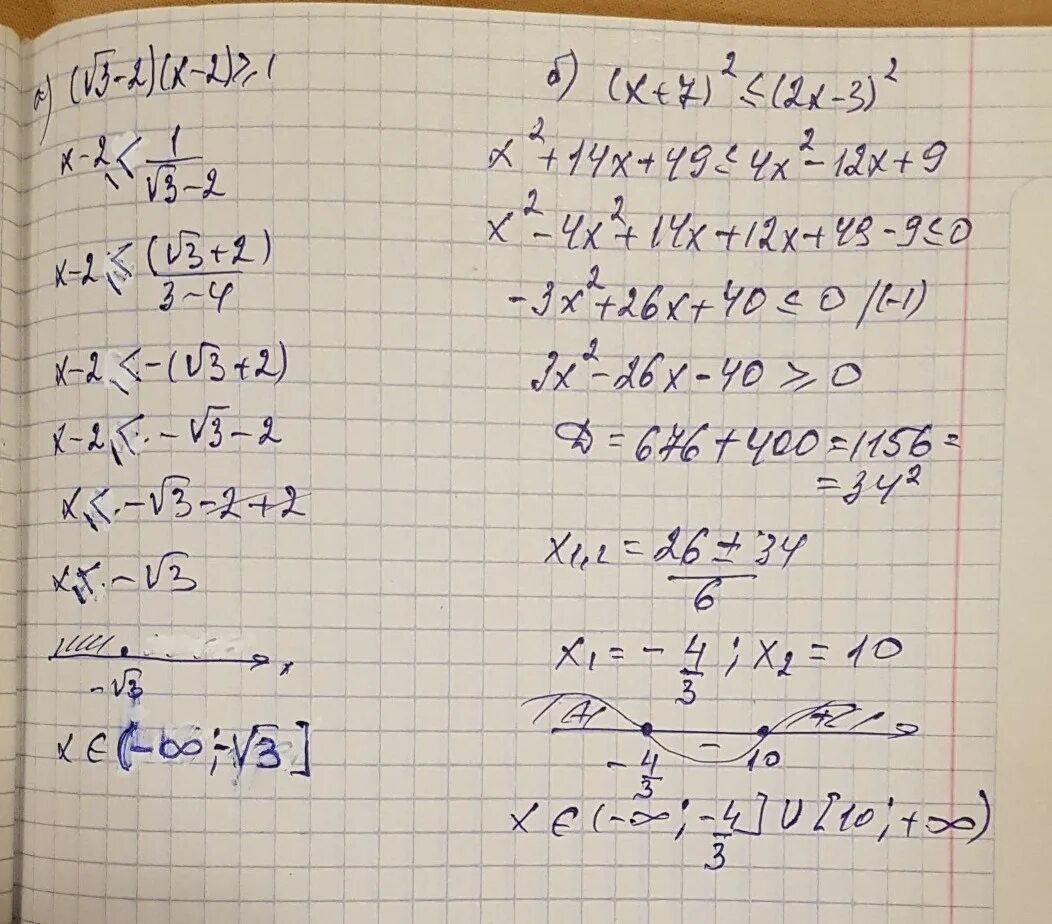 а) (√3-2)(x-2)≥1
x-2≤1/(√3-2)
x-2≤(√3+2)/(3-4)
x-2≤-(√3+2)
x-2≤-√3-2
x≤-√3-2+2
x≤-√3
x
-√3
x∈(-∞;-√3]
б) (x+7)²≤(2x-3)²
x²+14x+49≤4x²-12x+9
x²-4x²+14x+12x+49-9≤0
-3x²+26x+40≤0 /(-1)
3x²-26x-40≥0
D=676+400=1156=
=34²
x1,2=(26±34)/6
x₁=-4/3; x₂=10
+ - +
-4/3 10
x∈(-∞;-4/3]∪[10;+∞)